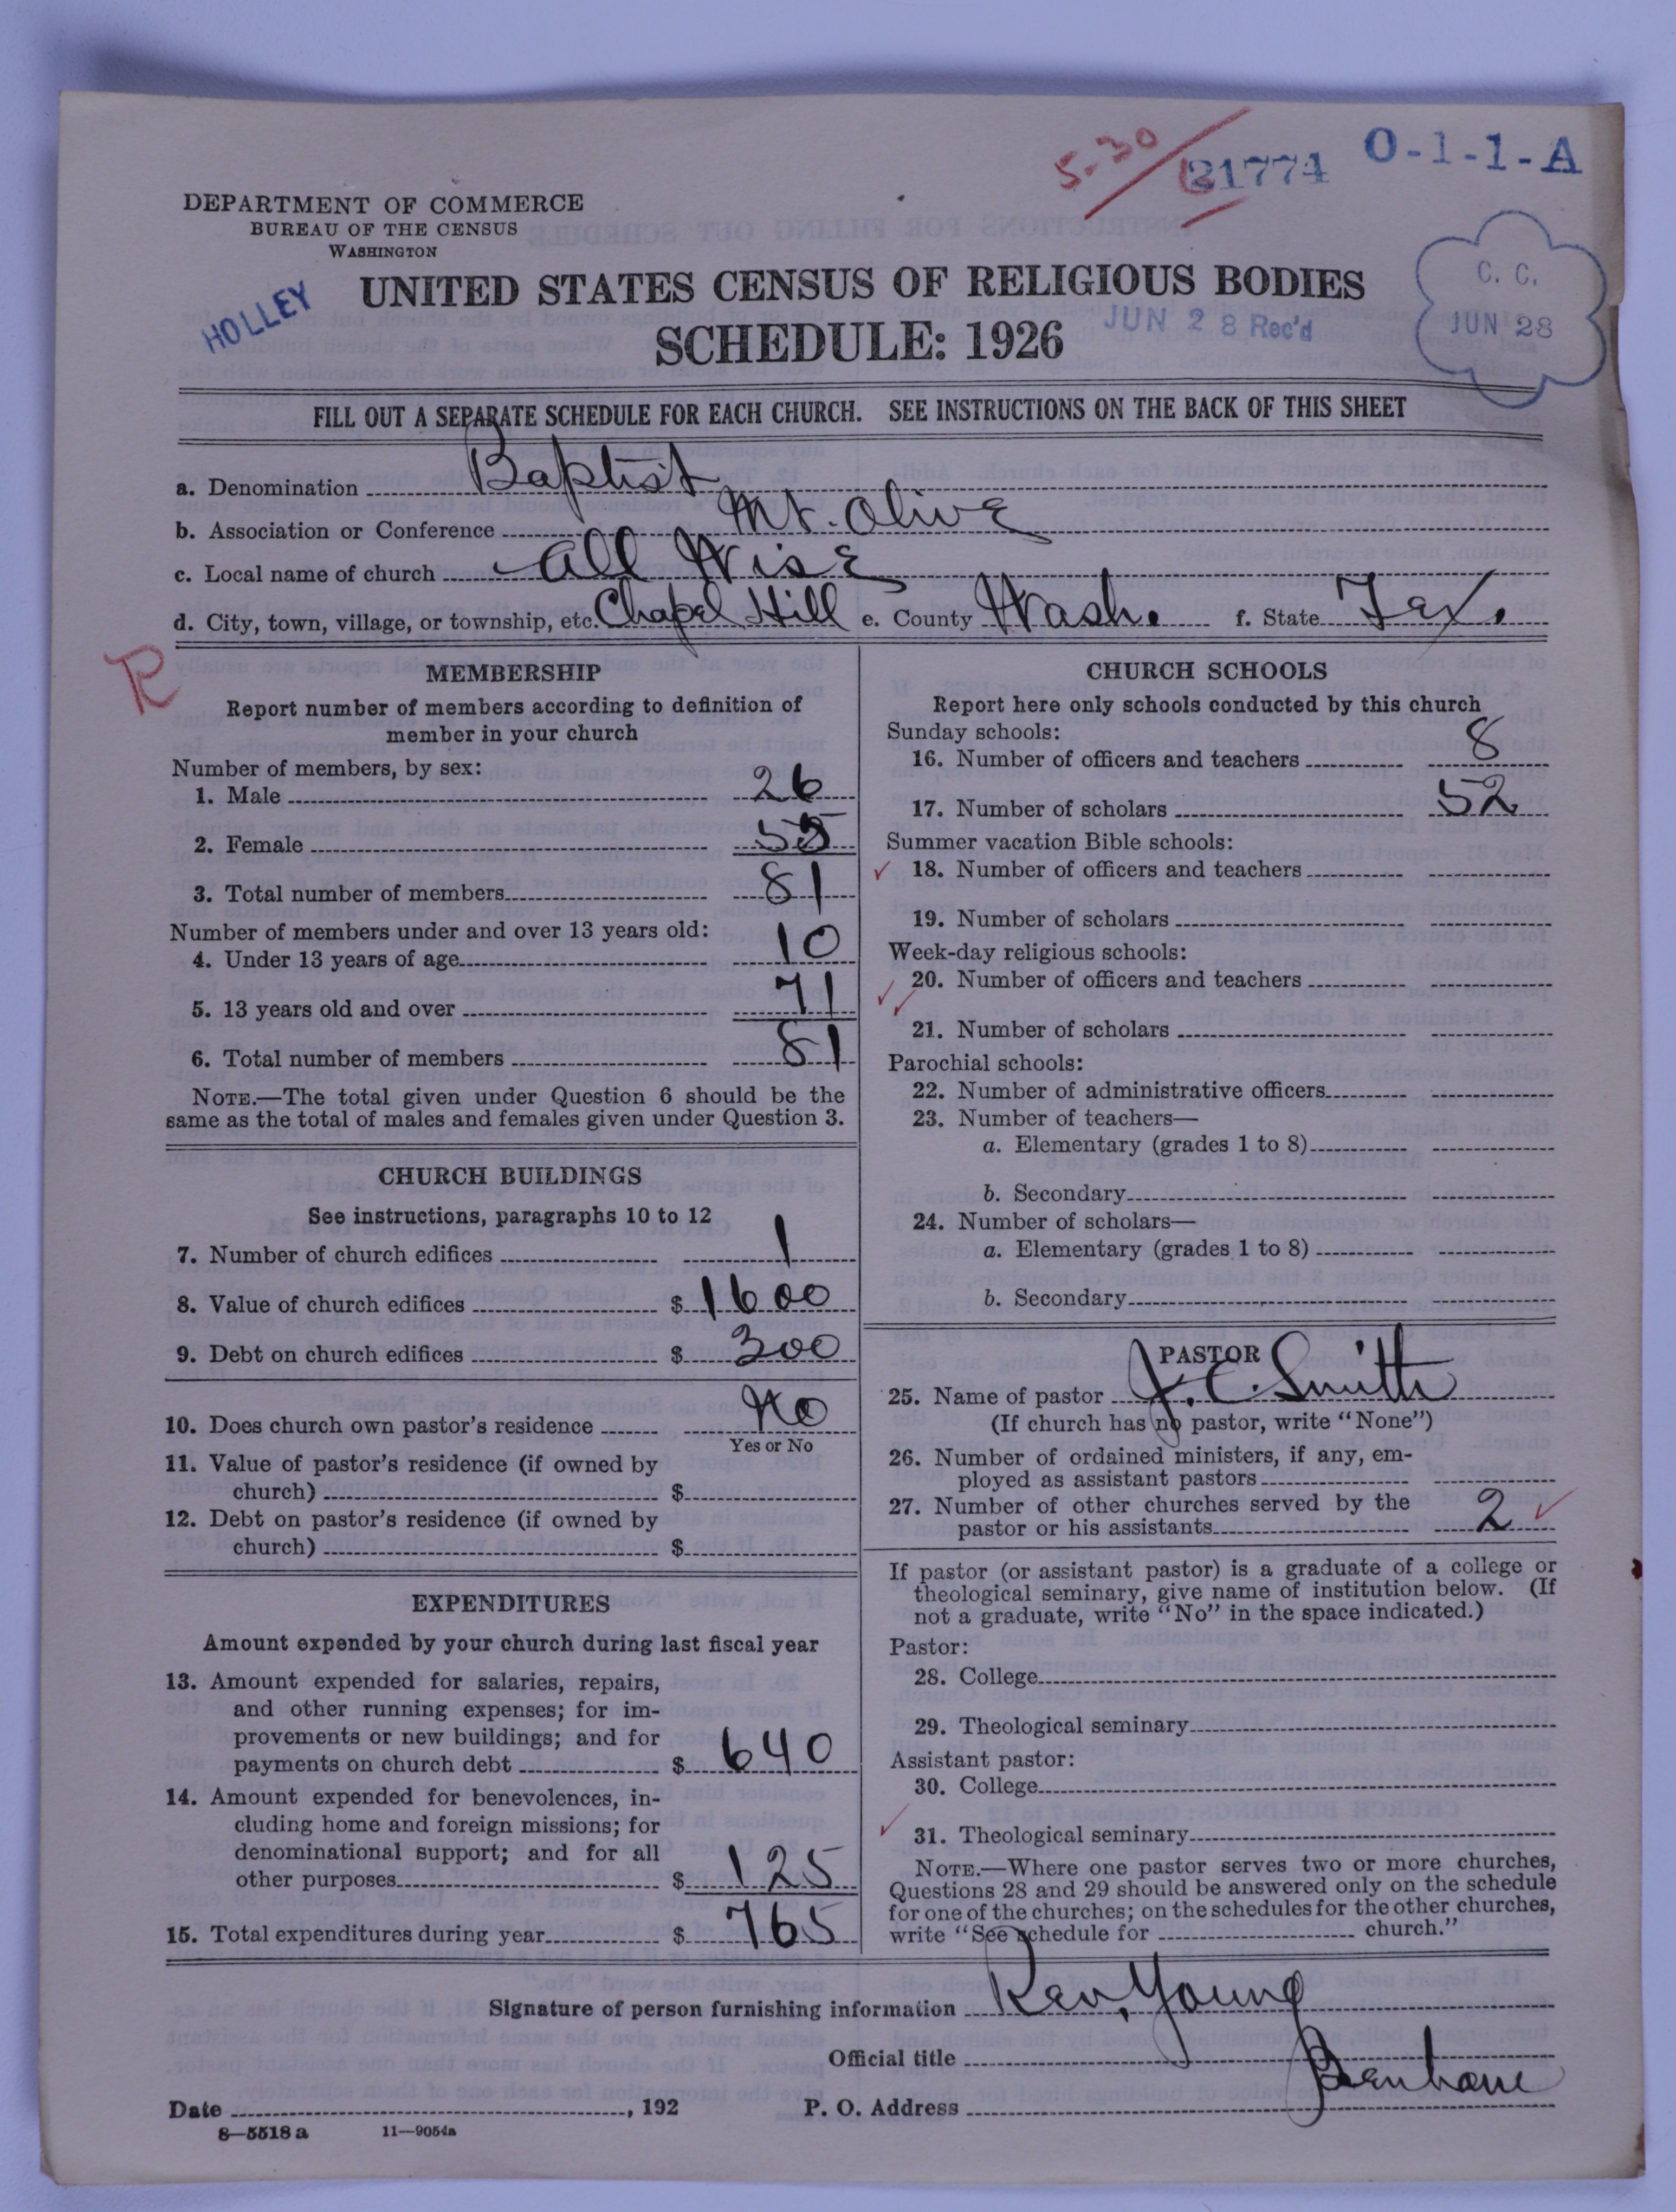 5-30
21774
O-1-1-A
DEPARTMENT OF COMMERCE
BUREAU OF THE CENSUS
WASHINGTON
HOLLEY
UNITED STATES CENSUS OF RELIGIOUS BODIES
SCHEDULE: 1926
JUN 28 Rec'd
C. C.
JUN 28
FILL OUT A SEPARATE SCHEDULE FOR EACH CHURCH. SEE INSTRUCTIONS ON THE BACK OF THIS SHEET
a. Denomination Baptist
b. Association or Conference Mt. Olive
c. Local name of church All Wise
d. City, town, village, or township, etc. Chapel Hill e. County Wash. f. State Tex.
R
MEMBERSHIP
Report number of members according to definition of
member in your church
Number of members, by sex:
1. Male 26
2. Female 55
3. Total number of members 81
Number of members under and over 13 years old:
4. Under 13 years of age 10
5. 13 years old and over 71
6. Total number of members 81
NOTE.—The total given under Question 6 should be the
same as the total of males and females given under Question 3.
CHURCH BUILDINGS
See instructions, paragraphs 10 to 12
7. Number of church edifices 1
8. Value of church edifices $ 1600
9. Debt on church edifices $ 300
10. Does church own pastor's residence No
Yes or No
11. Value of pastor's residence (if owned by
church) $
12. Debt on pastor's residence (if owned by
church) $
EXPENDITURES
Amount expended by your church during last fiscal year
13. Amount expended for salaries, repairs,
and other running expenses; for im-
provements or new buildings; and for
payments on church debt $ 640
14. Amount expended for benevolences, in-
cluding home and foreign missions; for
denominational support; and for all
other purposes $ 125
15. Total expenditures during year $ 765
CHURCH SCHOOLS
Report here only schools conducted by this church
Sunday schools:
16. Number of officers and teachers 8
17. Number of scholars 52
Summer vacation Bible schools:
18. Number of officers and teachers
19. Number of scholars
Week-day religious schools:
20. Number of officers and teachers
21. Number of scholars
Parochial schools:
22. Number of administrative officers
23. Number of teachers—
a. Elementary (grades 1 to 8)
b. Secondary
24. Number of scholars—
a. Elementary (grades 1 to 8)
b. Secondary
PASTOR
25. Name of pastor J. C. Smith
(If church has no pastor, write "None")
26. Number of ordained ministers, if any, em-
ployed as assistant pastors
27. Number of other churches served by the
pastor or his assistants 2
If pastor (or assistant pastor) is a graduate of a college or
theological seminary, give name of institution below. (If
not a graduate, write "No" in the space indicated.)
Pastor:
28. College
29. Theological seminary
Assistant pastor:
30. College
31. Theological seminary
NOTE.—Where one pastor serves two or more churches,
Questions 28 and 29 should be answered only on the schedule
for one of the churches; on the schedules for the other churches,
write "See schedule for church."
Signature of person furnishing information Rev. Young
Official title
Date , 192 P. O. Address
8—5518 a 11—9054a